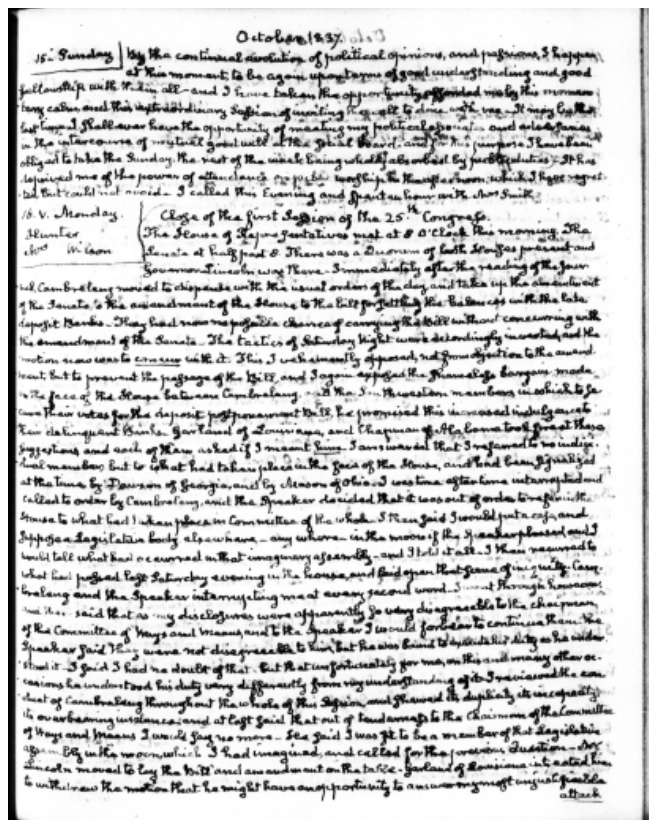 October 1837.
15. Sunday By the continual revolution of political opinions, and passions, I happen
at this moment, to be again upon terms of good understanding and good
fellowship with them all - and I have taken the opportunity afforded me by this momen-
tary calm and this extraordinary Session of inviting them all to dine with me. It may be the
last time I shall ever have the opportunity of meeting my political associates and adversaries
in the intercourse of mutual good will at the social board, and for this purpose I have been
obliged to take the Sunday, the rest of the week being wholly absorbed by public duties. It has
deprived me of the power of attendance on public worship in the afternoon, which I have regret-
ted but could not avoid. I called this Evening and spent an hour with Mrs Smith.
16. V. Monday. Close of the first Session of the 25th Congress.
Hunter The House of Representatives met at 8 O'Clock this morning. The
Mrs Wilson Senate at half past 8. There was a Quorum of both Houses present and
Governor Lincoln was there. Immediately after the reading of the Jour-
nal, Cambreleng moved to dispense with the usual orders of the day and take up the amendment
of the Senate, to the amendment of the House to the bill for settling the balances with the late
deposit Banks. They had now no possible chance of carrying the Bill without concurring with
the amendment of the Senate. The tactics of Saturday Night were accordingly inverted, and the
motion now was to concur with it. This I vehemently opposed, not from objection to the amend-
ment but to prevent the passage of the Bill, and I again exposed the shameless bargain made
in the face of the House between Cambreleng, and the Southwestern members, in which to se-
cure their votes for the deposit postponement Bill, he promised this increased indulgence to
their delinquent Banks. Garland of Louisiana, and Chapman of Alabama took fire at these
suggestions and each of them asked if I meant him. I answered that I referred to no indivi-
dual member but to what had taken place in the face of the House, and had been signalized
at the time by Dawson of Georgia, and by Mason of Ohio. I was time after time interrupted and
called to order by Cambreleng, and the Speaker decided that it was out of order to refer in the
House to what had taken place in Committee of the whole. I then said I would put a case, and
suppose a Legislative body elsewhere - any where - in the moon if the Speaker pleased, and I
would tell what had occurred in that imaginary assembly - and I told it all. I then returned to
what had passed last Saturday evening in the house, and said upon that scene of iniquity. Cam-
breleng and the Speaker interrupting me at every second word. I went through however
and then said that as my disclosures were apparently so very disagreeable to the chairman
of the Committee of Ways and Means, and to the Speaker I would forbear to continue them. The
Speaker said they were not disagreeable to him, but he was bound to execute his duty as he under-
stood it. I said I had no doubt of that. But that unfortunately for me, on this and many other oc-
casions he understood his duty very differently from my understanding of it. I reviewed the con-
duct of Cambreleng throughout the whole of this Session, and shewed its duplicity its incapacity
its overbearing insolence, and at last said that out of tenderness to the Chairman of the Committee
of Ways and Means I would say no more. He said I was fit to be a member of that Legislative
assembly in the moon, which I had imagined, and called for the previous Question. Mr
Lincoln moved to lay the Bill and amendment on the table. Garland of Louisiana intreated him
to withdraw the motion that he might have an opportunity to answer my most unjustifiable
attack